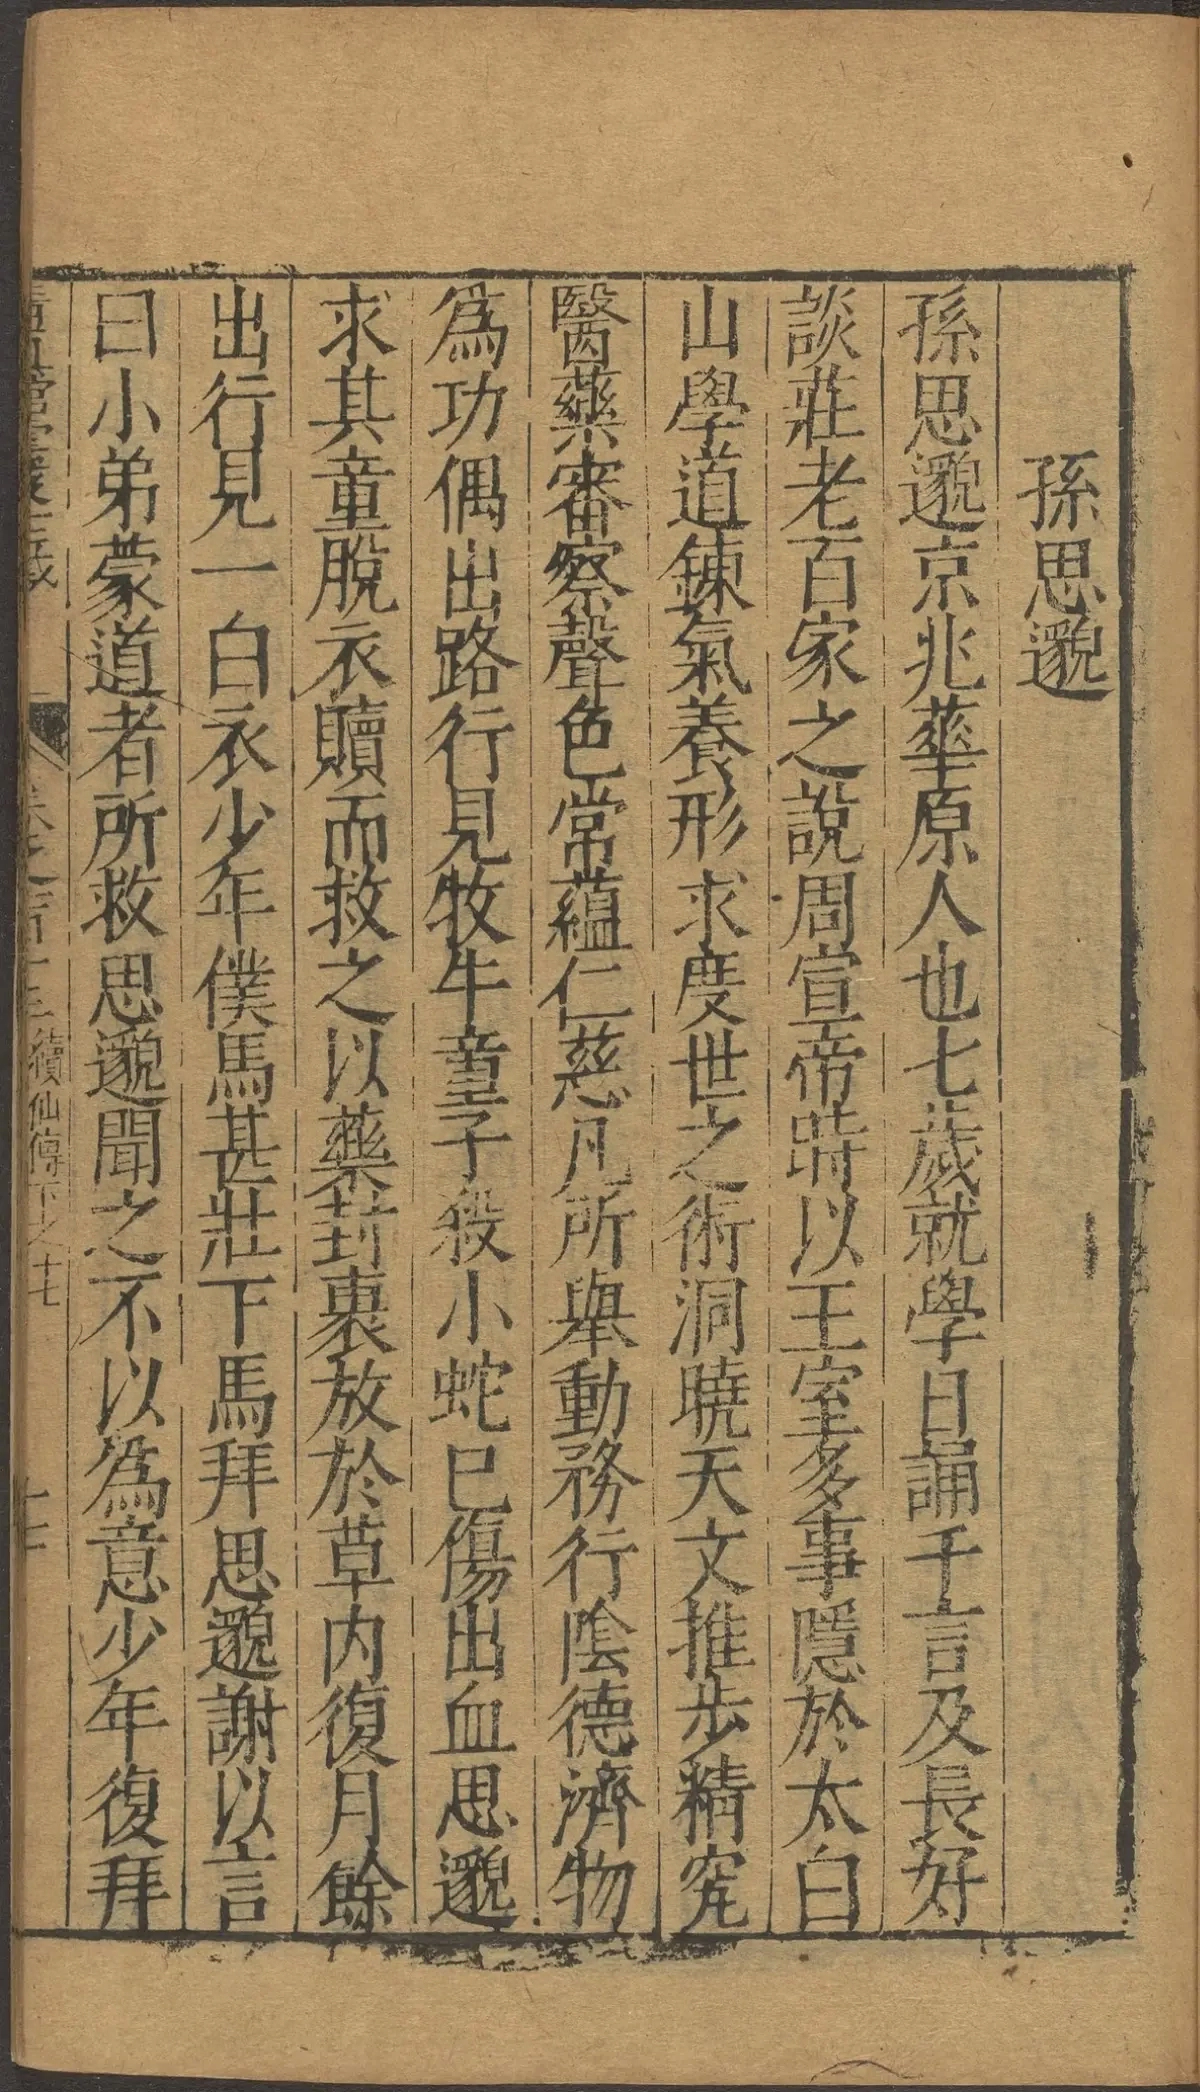 孫思邈
孫思邈京兆華原人也七歲就學日誦千言及長好
談莊老百家之說周宣帝時以王室多事隱於太白
山學道鍊氣養形求度世之術洞曉天文推步精究
醫藥審察聲色常蘊仁慈凡所舉動務行陰德濟物
爲功偶出路行見牧牛童子殺小蛇已傷出血思邈
求其童脫衣贖而救之以藥封裹放於草内復月餘
出行見一白衣少年僕馬甚壯下馬拜思邈謝以言
曰小弟蒙道者所救思邈聞之不以爲意少年復拜
續仙傳下之十七